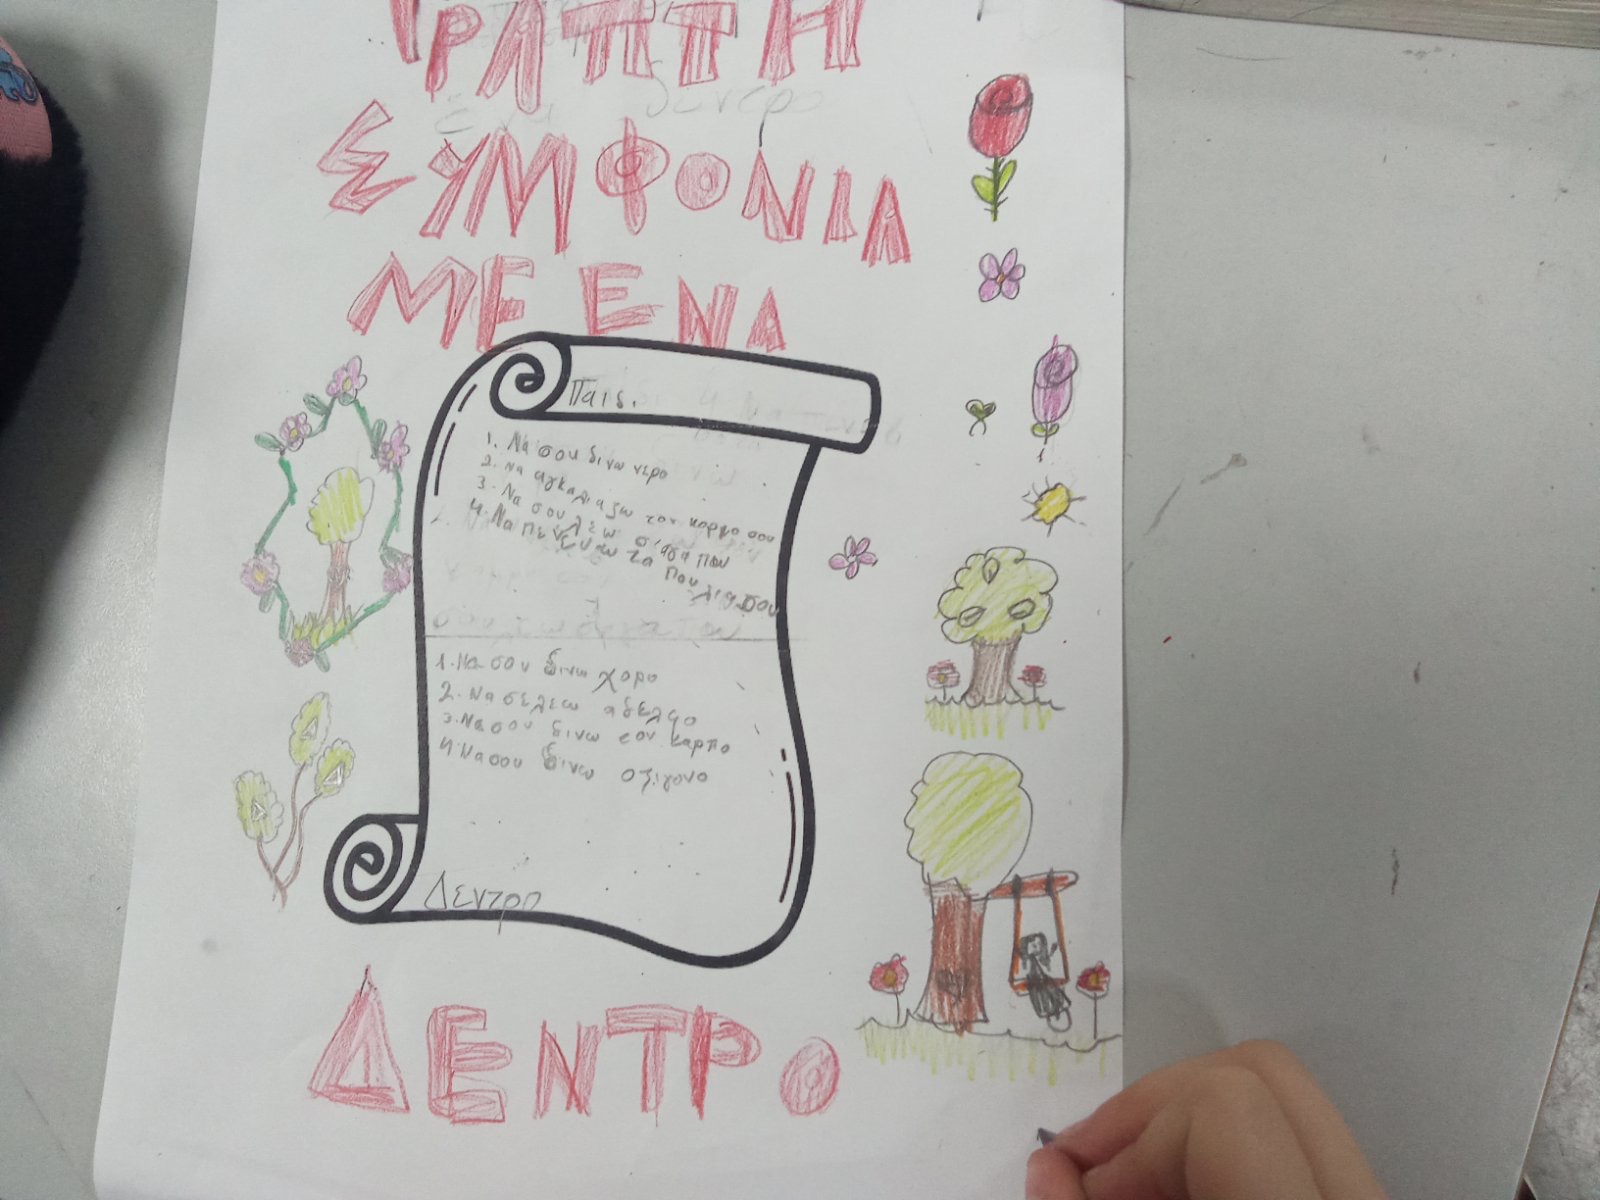 ΓΡΑΠΤΗ
ΣΥΜΦΟΝΙΑ
ΜΕ ΕΝΑ
Παιδ.
1. Να σου δινω νερο
2. να αγκαλιαζω τον κορμο σου
3. Να σου λεω σ'αγαπαω
4. Να τα πουλια σου
1. Να σου δινω χορο
2. Να σε λεω αδελφο
3. Να σου δινω τον καρπο
4. Να σου δινω οξιγονο
Δεντρο
ΔΕΝΤΡΟ